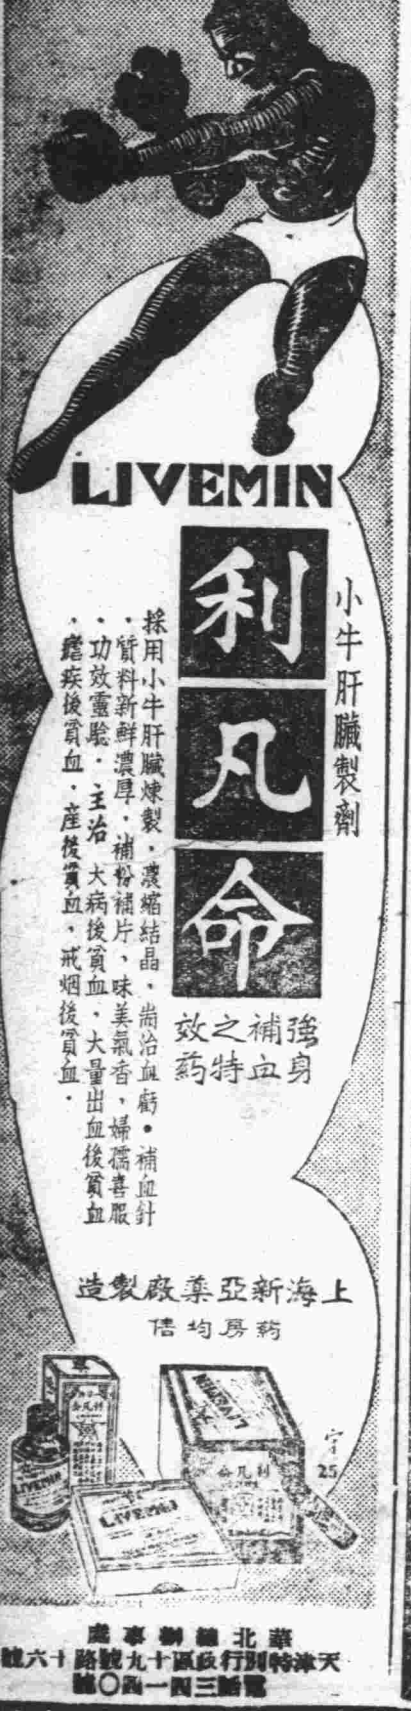 LIVEMIN
小牛肝臟製劑
利凡命
強身補血之特效药
採用小牛肝臟煉製，濃縮結晶，耑治血虧。補血針
，質料新鮮濃厚，補粉補片，味美氣香，婦孺喜服
，功效靈驗，主治 大病後貧血，大量出血後貧血
，瘧疾後貧血，產後貧血，戒烟後貧血．
上海新亞藥廠製造
药房均售
LIVEMIN
利凡命
LIVEMIN
利凡命
LIVEMIN
25
華北總辦事處
天津特別行政區十九號路十六號
電話三四一四〇號